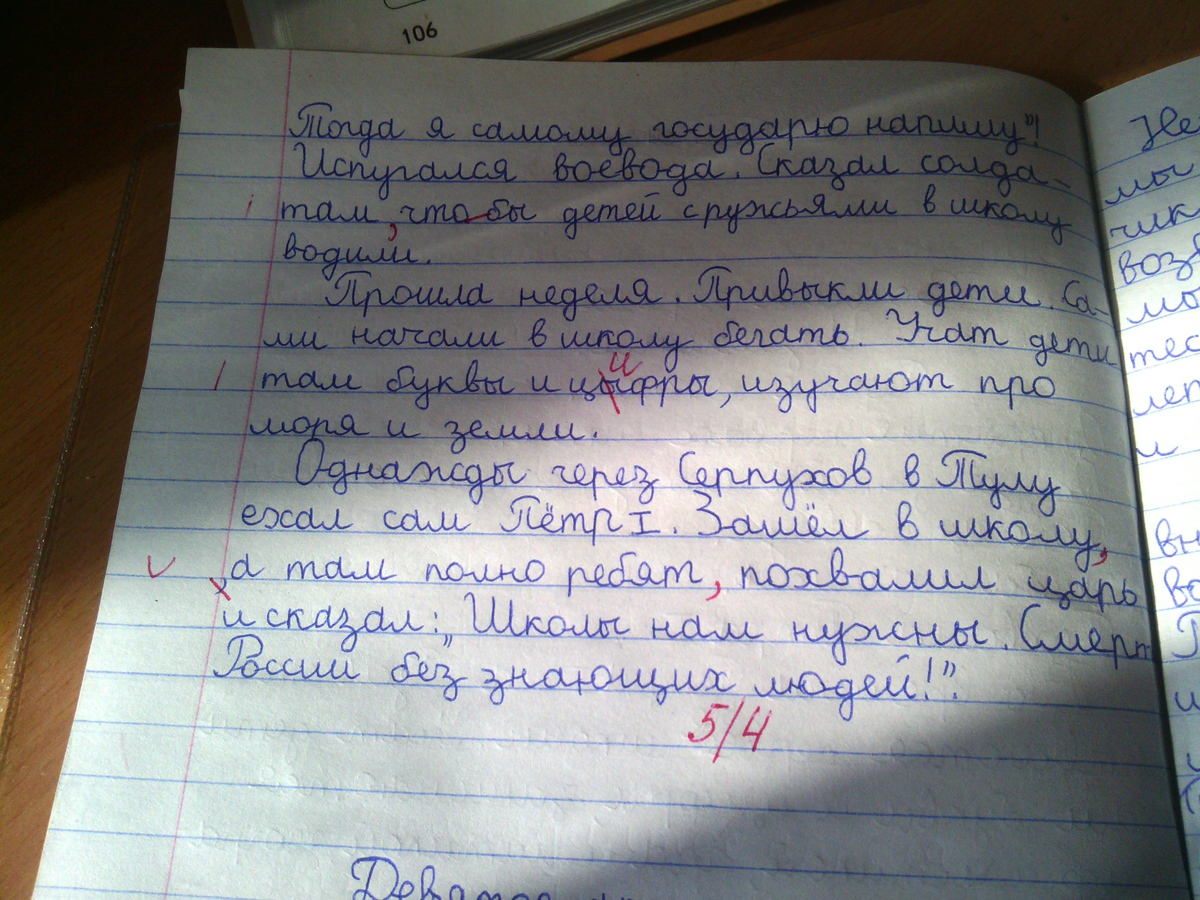 106
Тогда я самому государю напишу"!
Испугался воевода. Сказал солда-
там, что бы детей с ружьями в школу
водили.
Прошла неделя. Привыкли дети. Са-
ми начали в школу бегать. Учат дети
и
там буквы и цыфры, изучают про
моря и земли.
Однажды через Серпухов в Тулу
ехал сам Пётр I. Зашёл в школу,
а там полно ребят, похвалил царь
и сказал: „Школы нам нужны. Смерть
России без знающих людей!".
5/4